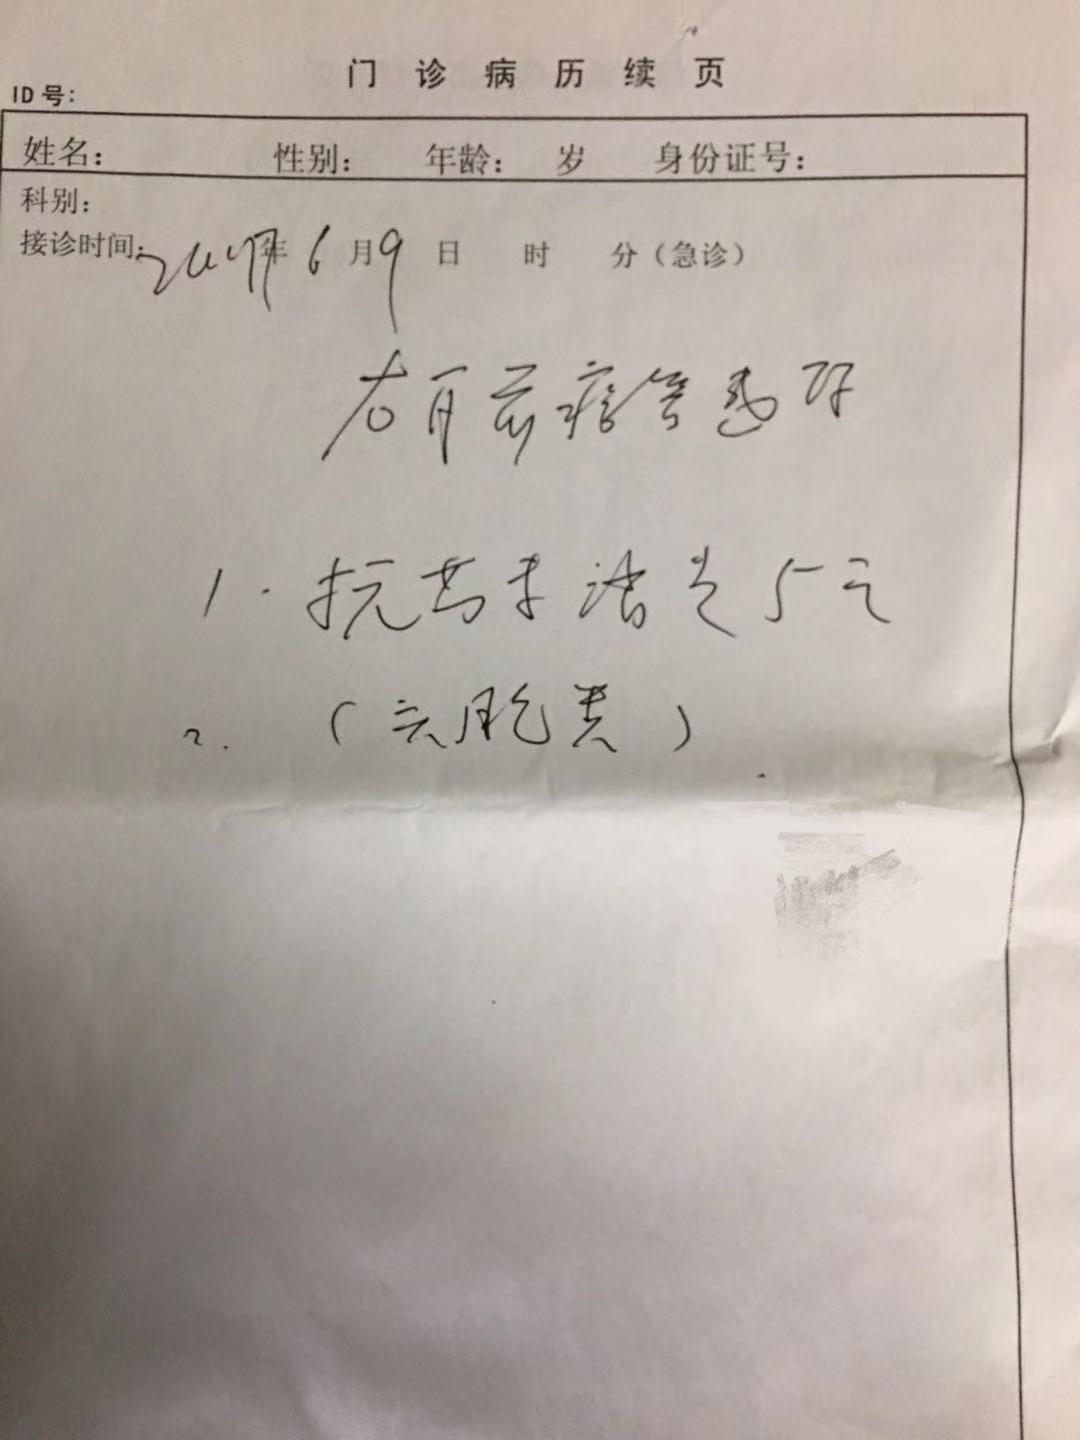 门诊病历续页
ID号:
姓名: 性别: 年龄: 岁 身份证号:
科别:
接诊时间: 2017年6月9日 时 分(急诊)
右耳前瘘管感染
1. 抗 治 5天
2. (头孢类)